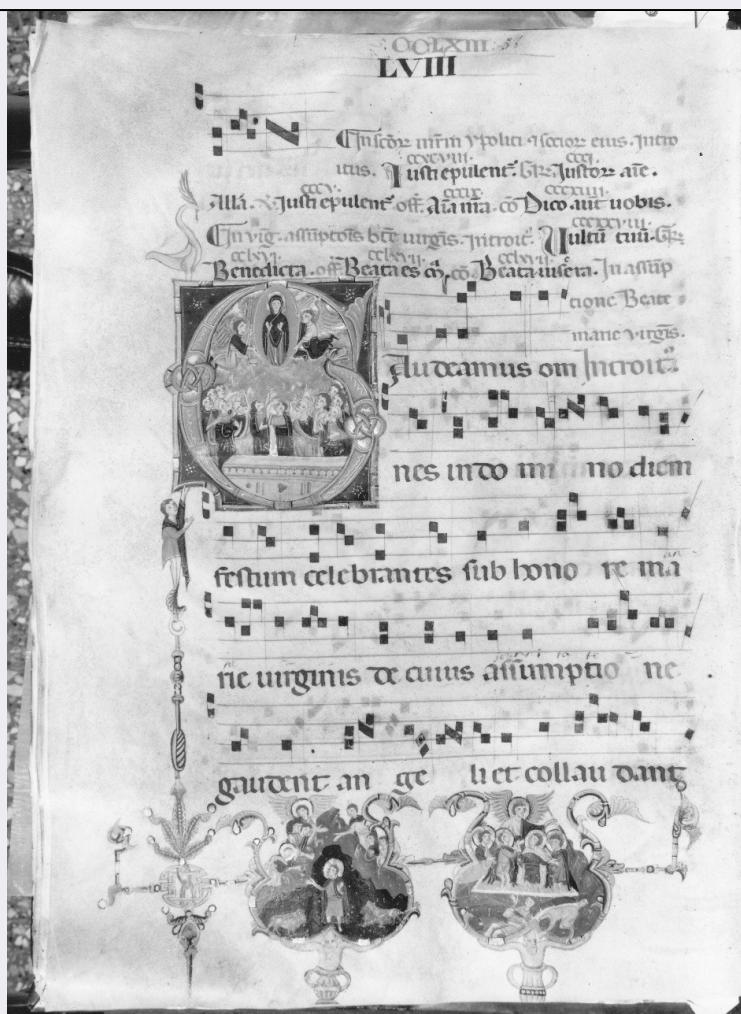 CCLXIII 56
LVIII
In scōr mr̄m ypoliti ⁊ socior eius. Intro
ccxcviii. ccci.
itus. Iusti epulent̄. Gr̄. Iustor aīe.
cccv. cccix. cccxiiii.
Allā. Iusti epulent̄ off. Aīa nr̄a. cō Dico aut̄ uobis.
ccccxxviii.
In viḡ. assūptiōis bt̄e uirgīs. Introit̄. Uultū tuū. Gr̄
cclxvi. cclxvii. cclxvii.
Benedicta. off. Beata es cō. Beata uiscēra. In assūp
tione Beate
marie virgīs.
Gaudeamus om Introit̄
nes in do mi no diem
festum celebrantes sub hono re ma
rie uirginis de cuius assumptio ne
gaudent an ge li et collau dant